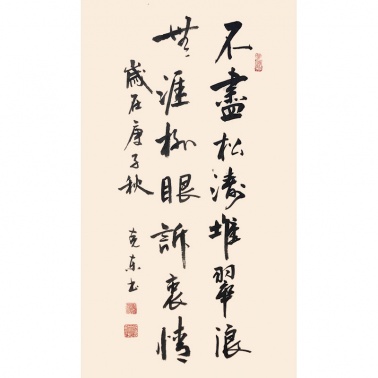 不盡松濤堆翠浪
無涯柳眼訴衷情
歲在庚子秋
克東書